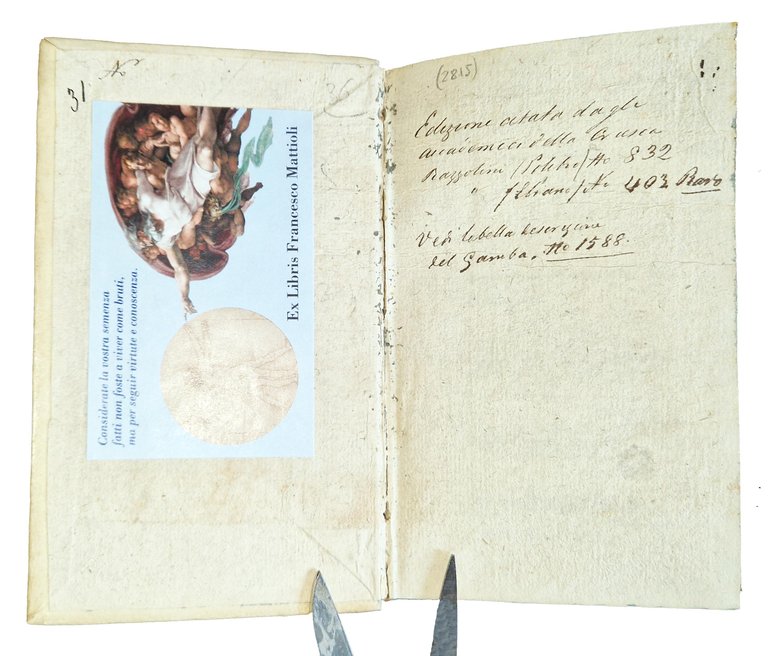 31
No
36
Considerate la vostra semenza
fatti non foste a viver come bruti,
ma per seguir virtute e conoscenza.
Ex Libris Francesco Mattioli
(2815)
Edizione citata dagli
accademici della Crusca
Razzolini (Polidro) No 832
" No 403 Raro
Vedi la bella descrizione
del Gamba. No 1588.